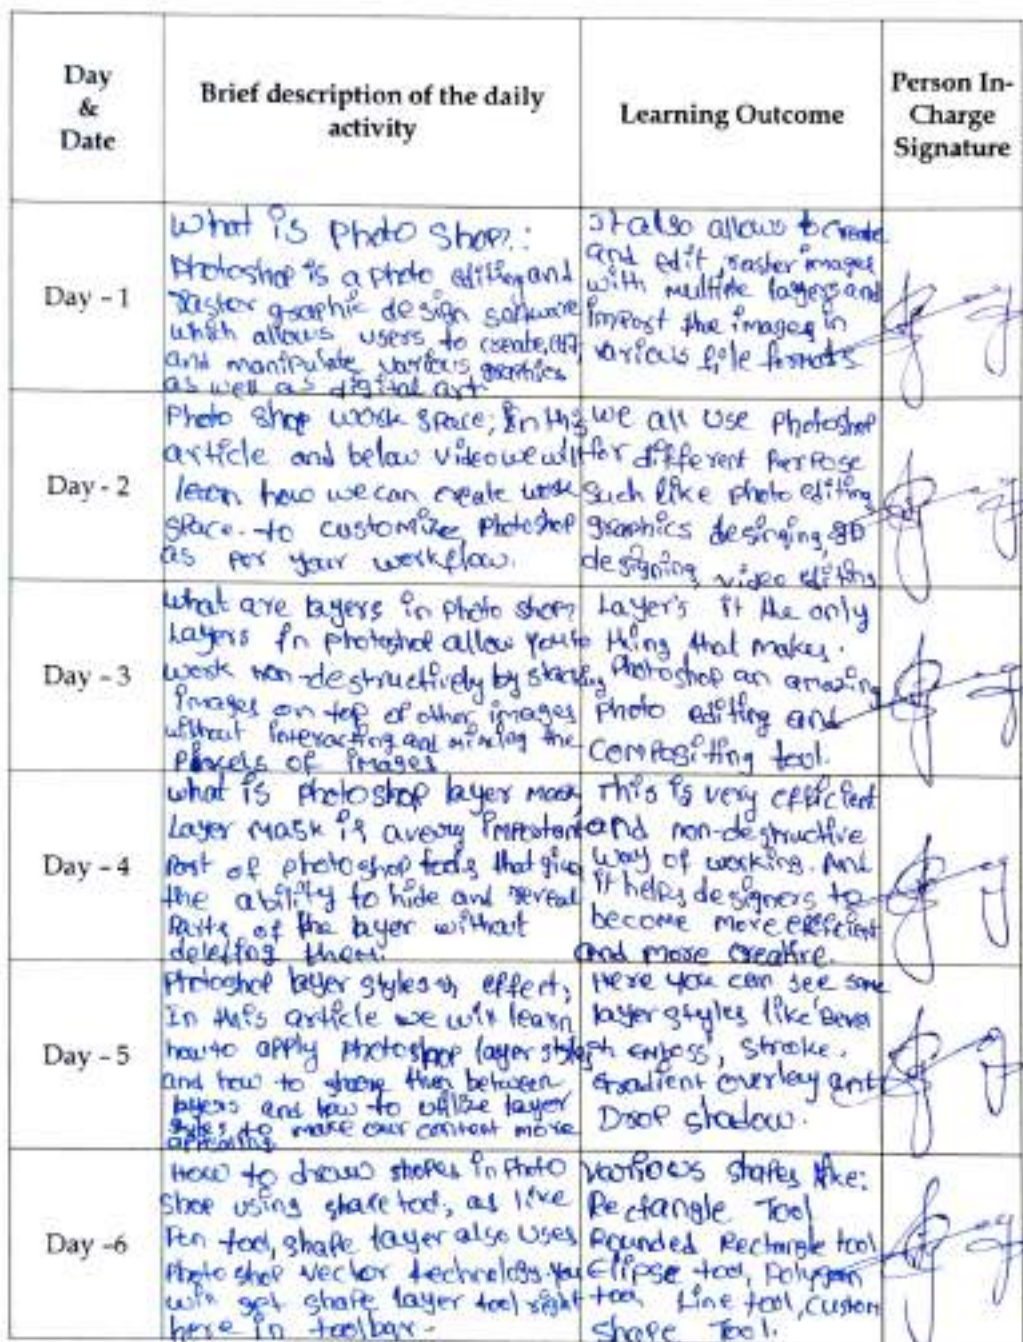 Day
&
Date
Brief description of the daily
activity
Learning Outcome
Person In-
Charge
Signature
Day - 1
What is photo shop?:
Photoshop is a photo editing and
raster graphic design software
which allows users to create, edit,
and manipulate various graphics
as well as digital art.
It also allows to create
and edit raster images
with multiple layers and
import the images in
various file formats
Day - 2
Photo shop work space; In this
article and below video we will
learn how we can create work
space. to customize photoshop
as per your workflow.
we all use photoshop
for different perpose
such like photo editing
graphics desinging, 3D
designing, video editing
Day - 3
what are layers in photo shop?
Layers in photoshop allow you to
work non-destructively by stacking
images on top of other images
without interacting and mixing the
pixcels of images
Layer's it the only
thing that makes.
photoshop an amazing
photo editing and
compositing tool.
Day - 4
what is photoshop layer mask
Layer mask is a very important
part of photoshop tools that give
the ability to hide and reveal
parts of the layer without
deleting them.
This is very efficient
and non-destructive
way of working. And
it helps designers to
become more efficient
and more creative.
Day - 5
Photoshop layer styles effect;
In this article we will learn
how to apply photoshop layer styles
and how to share them between
layers and how to utilize layer
styles to make our content more
appealing
Here you can see some
layer styles like Bevel
emboss', stroke.
Gradient overlay and
Drop shadow.
Day -6
How to draw shapes in photo
shop using shape tool; as like
Pen tool, shape layer also uses
photo shop vector technology. you
will get shape layer tool right
here in toolbar.
various shapes like:
Rectangle Tool
Rounded Rectangle tool
Elipse tool, Polygon
tool Line tool, custom
shape Tool.